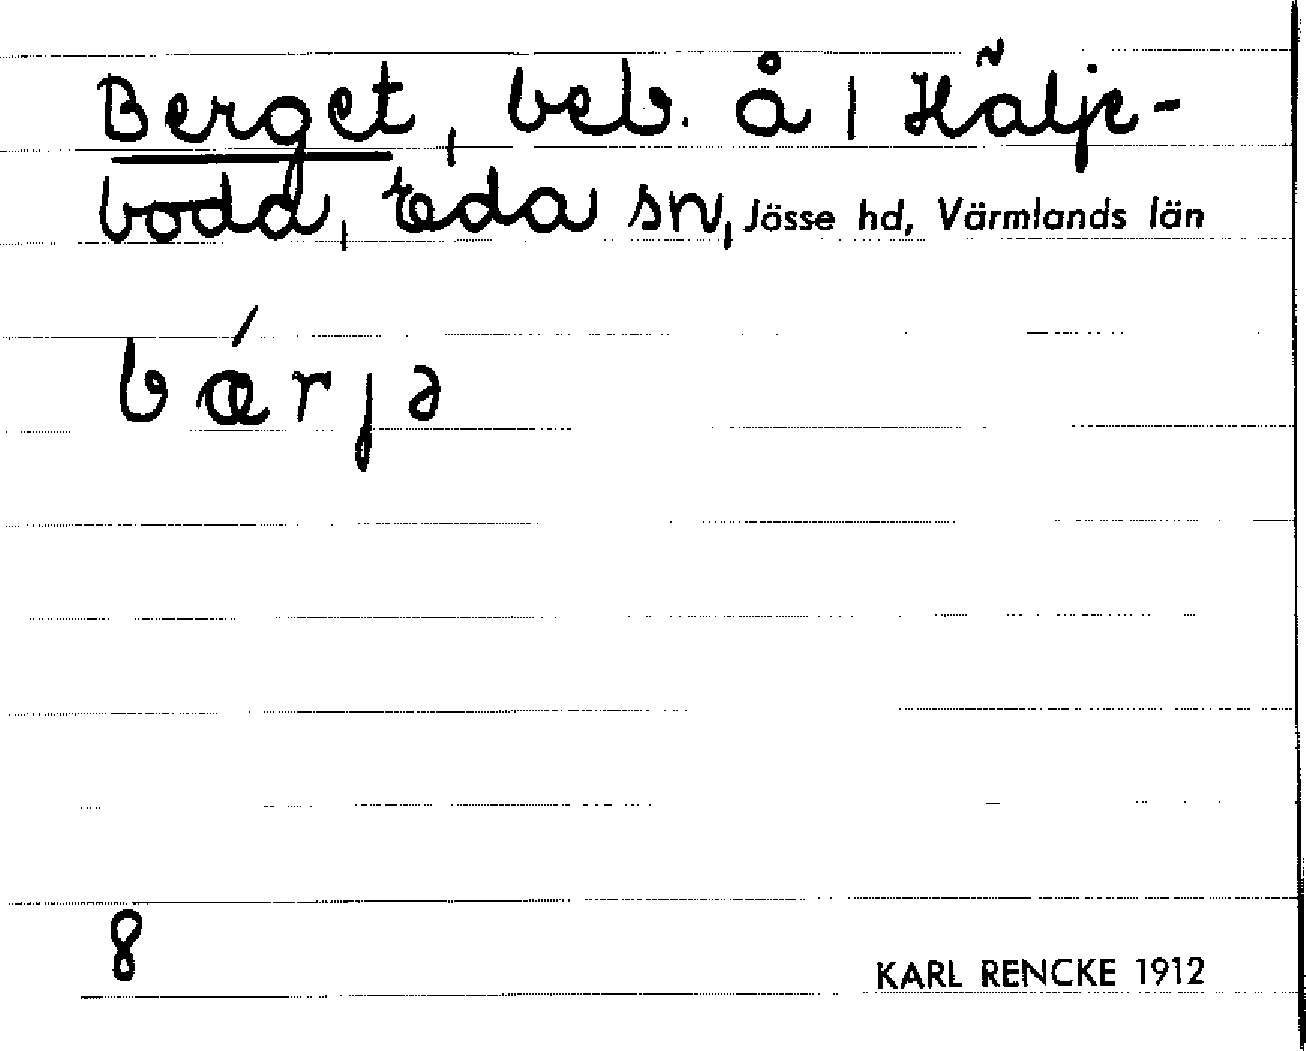 Berget, beb. å 1 Hälje-
bodd, Eda sn, Jösse hd, Värmlands län
bǽrjə
8
KARL RENCKE 1912